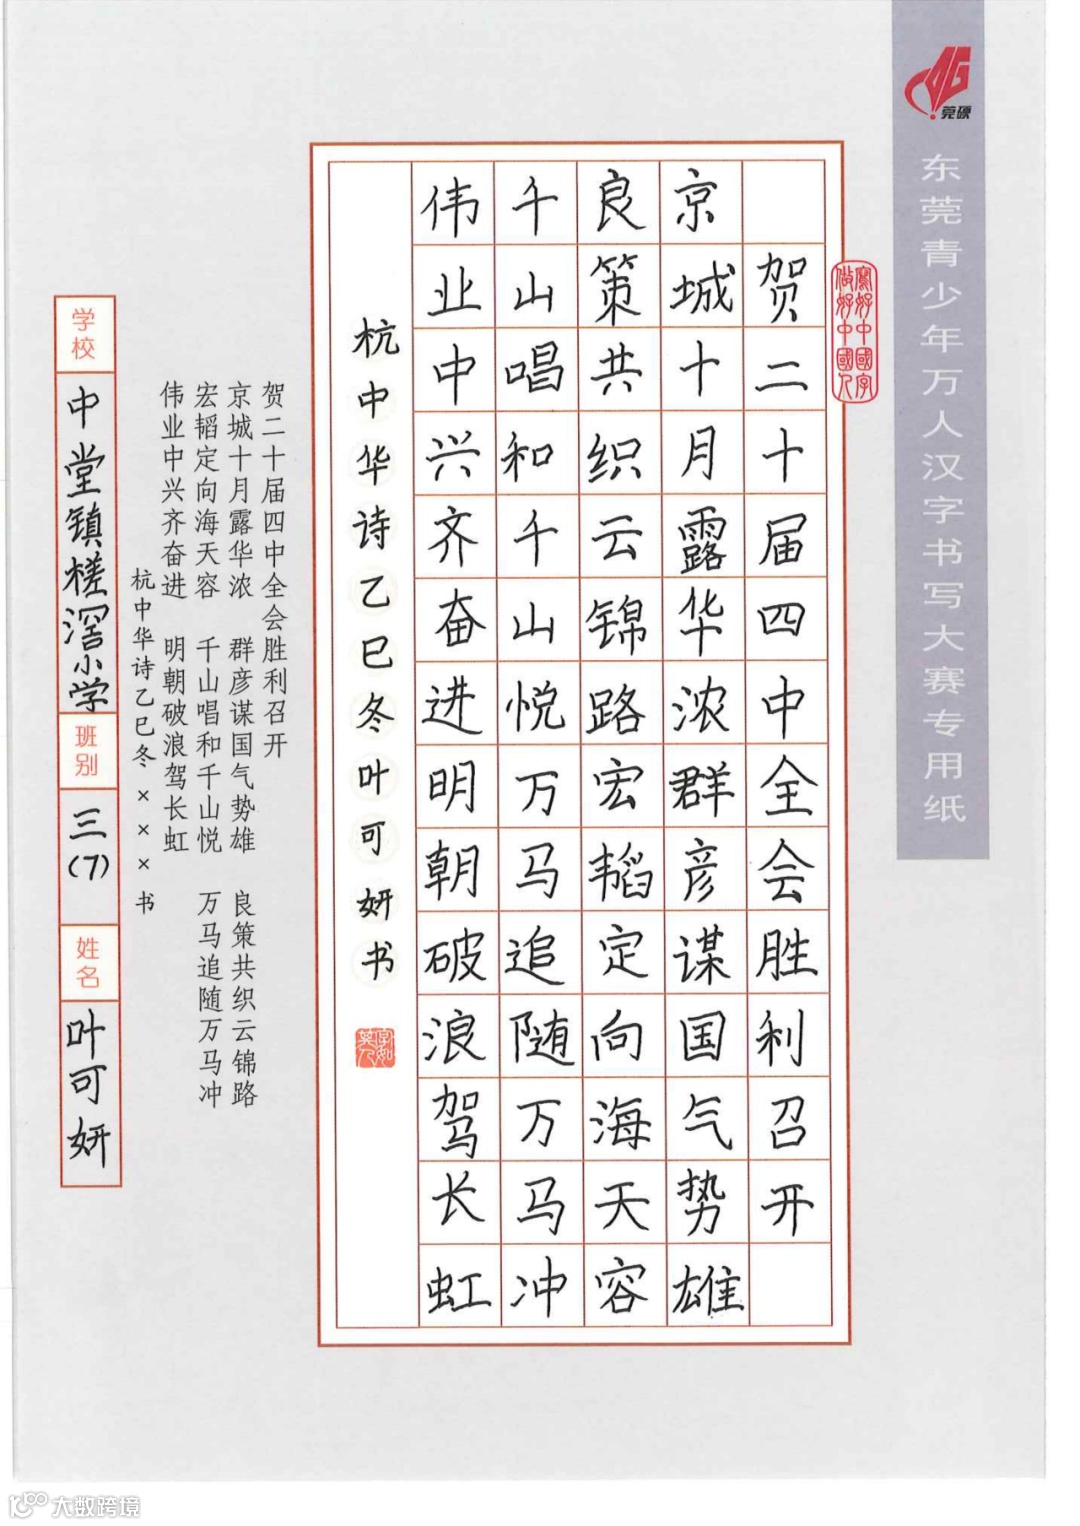 莞硕
东莞青少年万人汉字书写大赛专用纸
寫好中國字
做好中國人
贺二十届四中全会胜利召开
京城十月露华浓群彦谋国气势雄
良策共织云锦路宏韬定向海天容
千山唱和千山悦万马追随万马冲
伟业中兴齐奋进明朝破浪驾长虹
杭中华诗乙巳冬叶可妍书
贺二十届四中全会胜利召开
京城十月露华浓 群彦谋国气势雄 良策共织云锦路
宏韬定向海天容 千山唱和千山悦 万马追随万马冲
伟业中兴齐奋进 明朝破浪驾长虹
杭中华诗乙巳冬×××书
学校
中堂镇槎滘小学
班别
三(7)
姓名
叶可妍
大数跨境